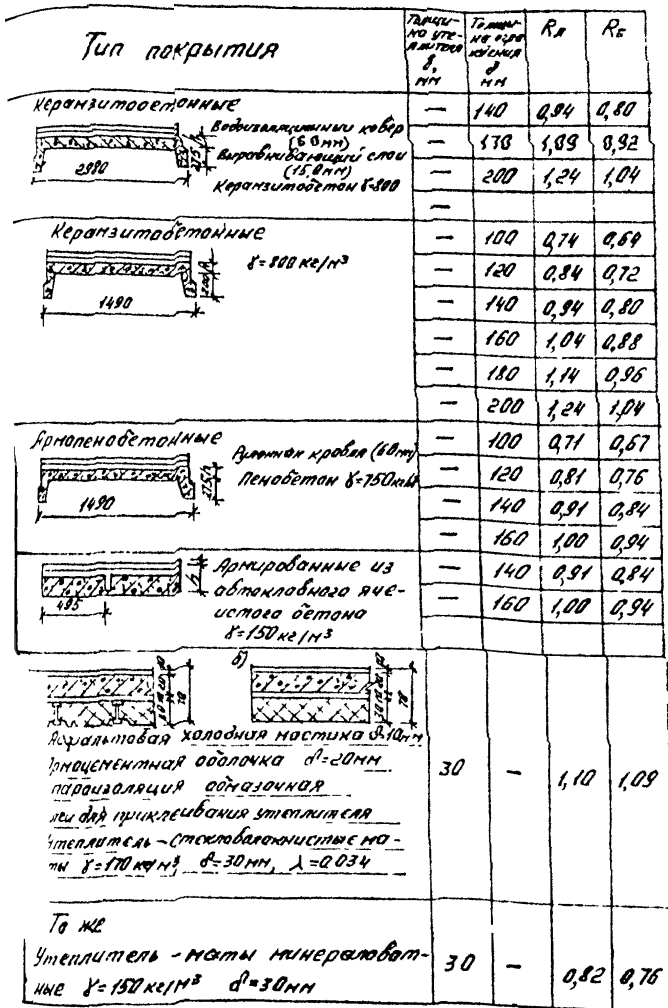 Тип покрытия
Толщина утеплителя δ, мм
Толщина ограждения δ мм
RА
RБ
Керамзитобетонные
Водоизоляционный ковер
(60мм)
Выравнивающий слой
(15,0мм)
Керамзитобетон γ-800
2980
275 h
— 140 0,94 0,80
— 170 1,09 0,92
— 200 1,24 1,04
—
Керамзитобетонные
γ=800 кг/м³
1490
200 h
— 100 0,74 0,64
— 120 0,84 0,72
— 140 0,94 0,80
— 160 1,04 0,88
— 180 1,14 0,96
— 200 1,24 1,04
Армопенобетонные
Рулонная кровля (60мм)
Пенобетон γ=750кг/м³
1490
275 h
— 100 0,71 0,67
— 120 0,81 0,76
— 140 0,91 0,84
— 160 1,00 0,94
Армированные из
автоклавного яче-
истого бетона
γ=150 кг/м³
495
h
— 140 0,91 0,84
— 160 1,00 0,94
б)
78
78
Асфальтовая холодная мастика δ-10мм
Армоцементная оболочка δ=20мм
пароизоляция обмазочная
клей для приклеивания утеплителя
Утеплитель-стекловолокнистые ма-
ты γ=170 кг/м³, δ=30мм, λ=0.034
30 — 1,10 1,09
То же
Утеплитель - маты минераловат-
ные γ=150 кг/м³ δ=30мм
30 — 0,82 0,76